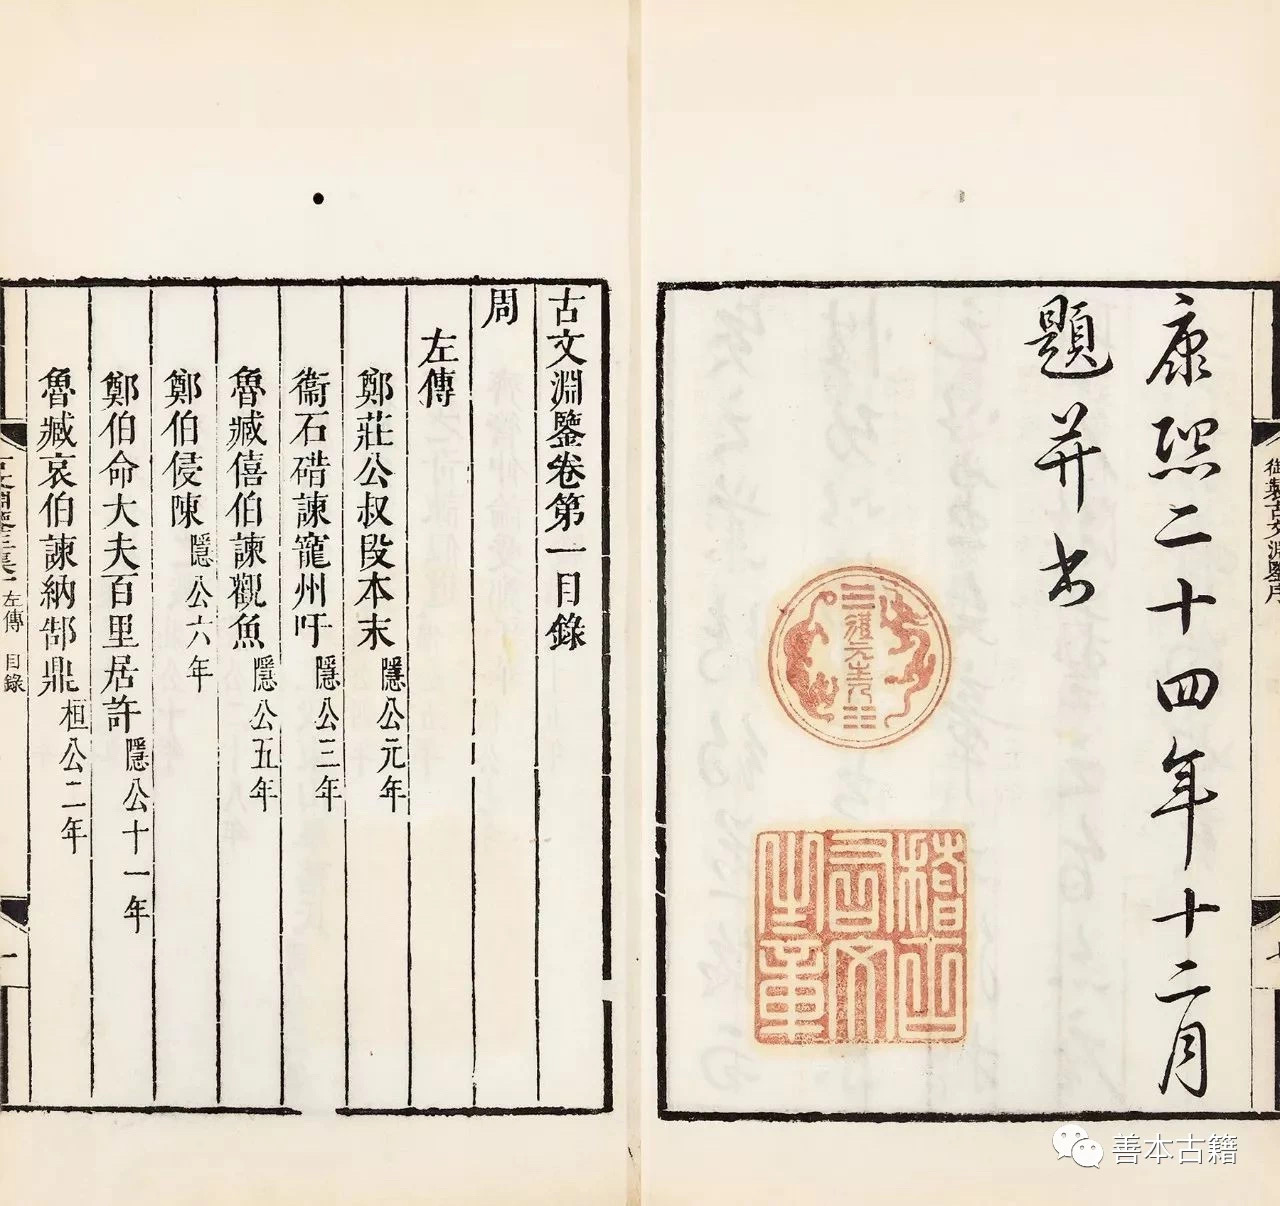 康熙二十四年十二月
題并書
體元主人
稽古
右文
之章
御製古文淵鑒序
古文淵鑒卷第一目錄
周
左傳
鄭莊公叔段本末 隱公元年
衞石碏諫寵州吁 隱公三年
魯臧僖伯諫觀魚 隱公五年
鄭伯侵陳 隱公六年
鄭伯命大夫百里居許 隱公十一年
魯臧哀伯諫納郜鼎 桓公二年
左傳 目錄
一
善本古籍